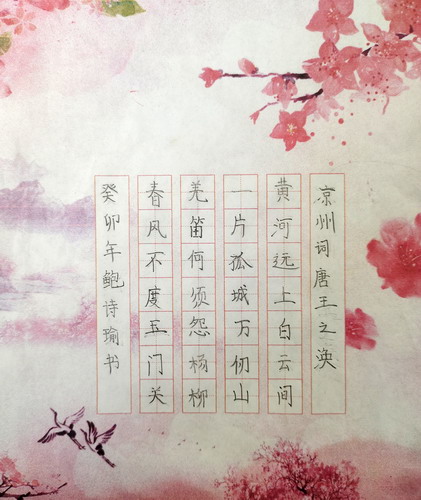 凉州词唐王之涣
黄河远上白云间
一片孤城万仞山
羌笛何须怨杨柳
春风不度玉门关
癸卯年鲍诗瑜书